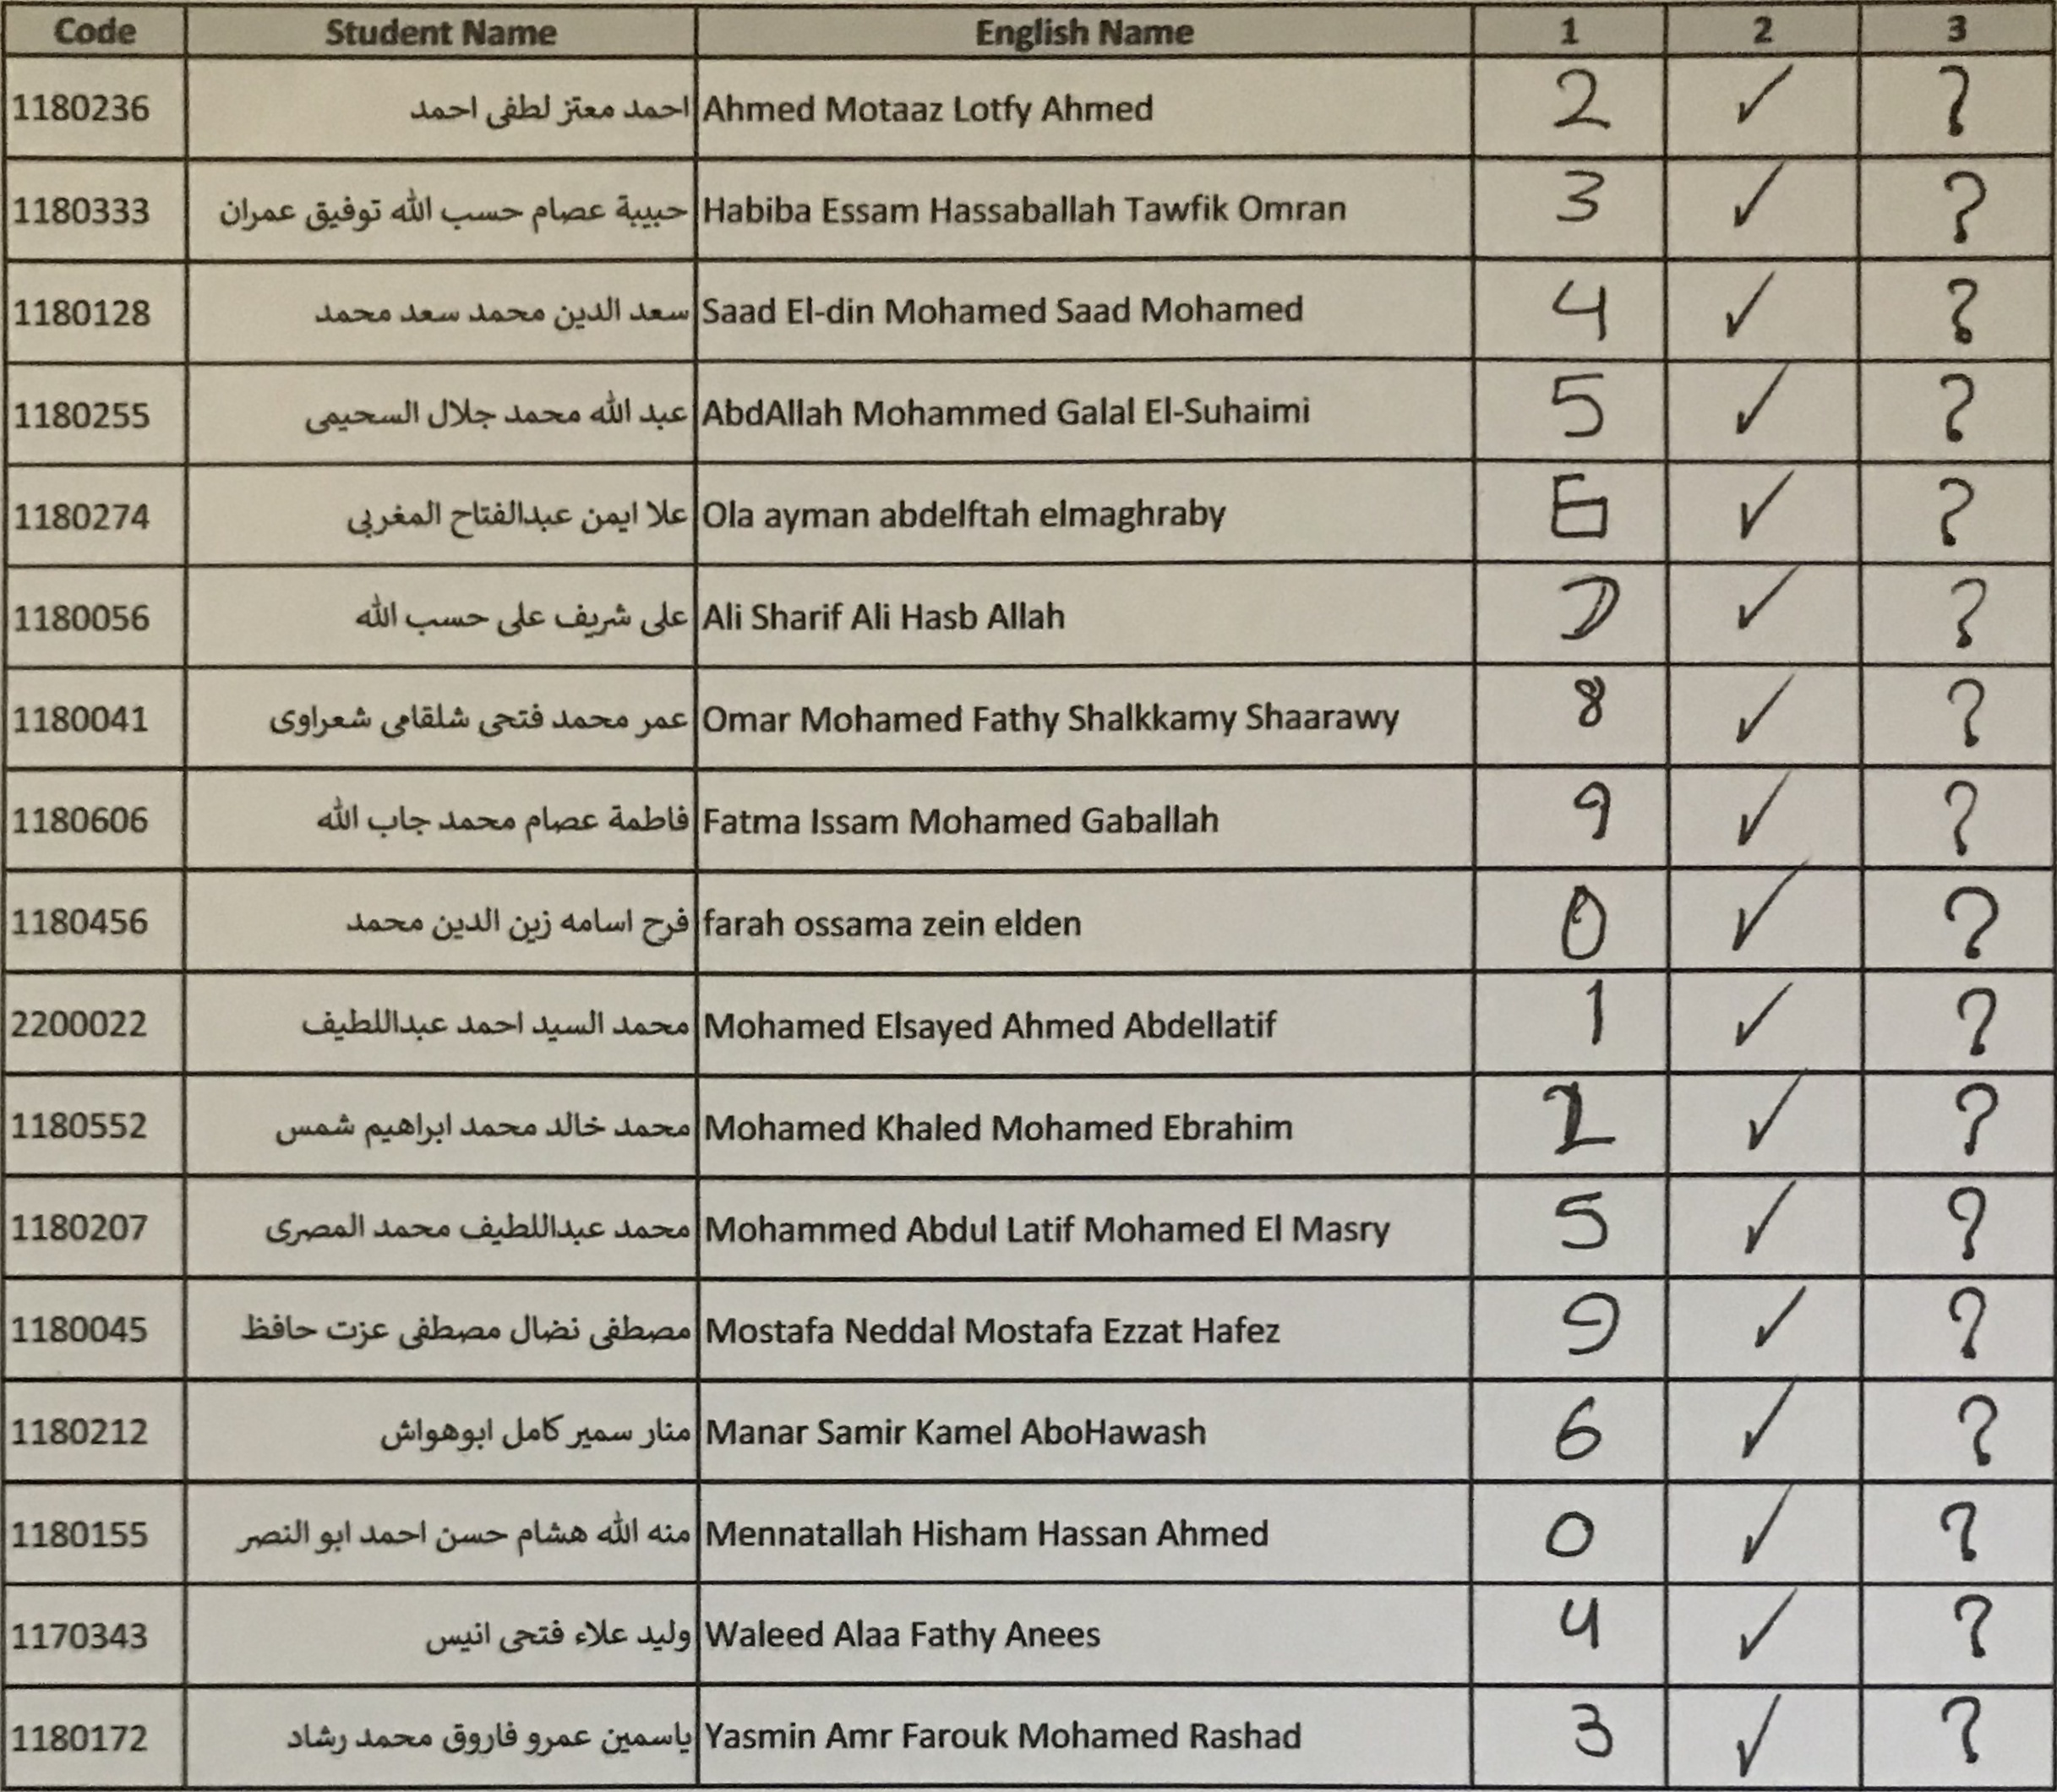 Code Student Name English Name 1 2 3
1180236 احمد معتز لطفى احمد Ahmed Motaaz Lotfy Ahmed 2 ✓ ?
1180333 حبيبة عصام حسب الله توفيق عمران Habiba Essam Hassaballah Tawfik Omran 3 ✓ ?
1180128 سعد الدين محمد سعد محمد Saad El-din Mohamed Saad Mohamed 4 ✓ ?
1180255 عبد الله محمد جلال السحيمى AbdAllah Mohammed Galal El-Suhaimi 5 ✓ ?
1180274 علا ايمن عبدالفتاح المغربى Ola ayman abdelftah elmaghraby 6 ✓ ?
1180056 على شريف على حسب الله Ali Sharif Ali Hasb Allah ✓ ?
1180041 عمر محمد فتحى شلقامى شعراوى Omar Mohamed Fathy Shalkkamy Shaarawy 8 ✓ ?
1180606 فاطمة عصام محمد جاب الله Fatma Issam Mohamed Gaballah 9 ✓ ?
1180456 فرح اسامه زين الدين محمد farah ossama zein elden 0 ✓ ?
2200022 محمد السيد احمد عبداللطيف Mohamed Elsayed Ahmed Abdellatif 1 ✓ ?
1180552 محمد خالد محمد ابراهيم شمس Mohamed Khaled Mohamed Ebrahim 2 ✓ ?
1180207 محمد عبداللطيف محمد المصرى Mohammed Abdul Latif Mohamed El Masry 5 ✓ ?
1180045 مصطفى نضال مصطفى عزت حافظ Mostafa Neddal Mostafa Ezzat Hafez 9 ✓ ?
1180212 منار سمير كامل ابوهواش Manar Samir Kamel AboHawash 6 ✓ ?
1180155 منه الله هشام حسن احمد ابو النصر Mennatallah Hisham Hassan Ahmed 0 ✓ ?
1170343 وليد علاء فتحى انيس Waleed Alaa Fathy Anees 4 ✓ ?
1180172 ياسمين عمرو فاروق محمد رشاد Yasmin Amr Farouk Mohamed Rashad 3 ✓ ?